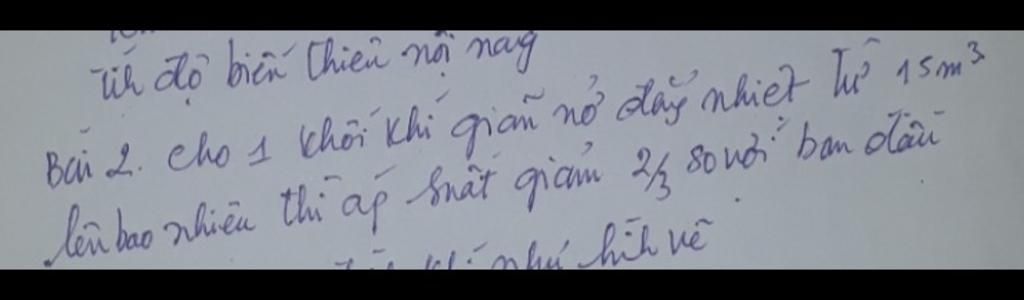 tính độ biến thiên nội năng
Bài 2. cho 1 khối khí giãn nở đẳng nhiệt từ 15m³
lên bao nhiêu thì áp suất giảm 2/3 so với ban đầu
khí như hình vẽ